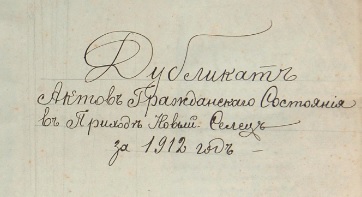 Дубликатъ
Актовъ Гражданскаго Состоянія
въ Приходѣ Новый Селецъ
за 1912 годъ